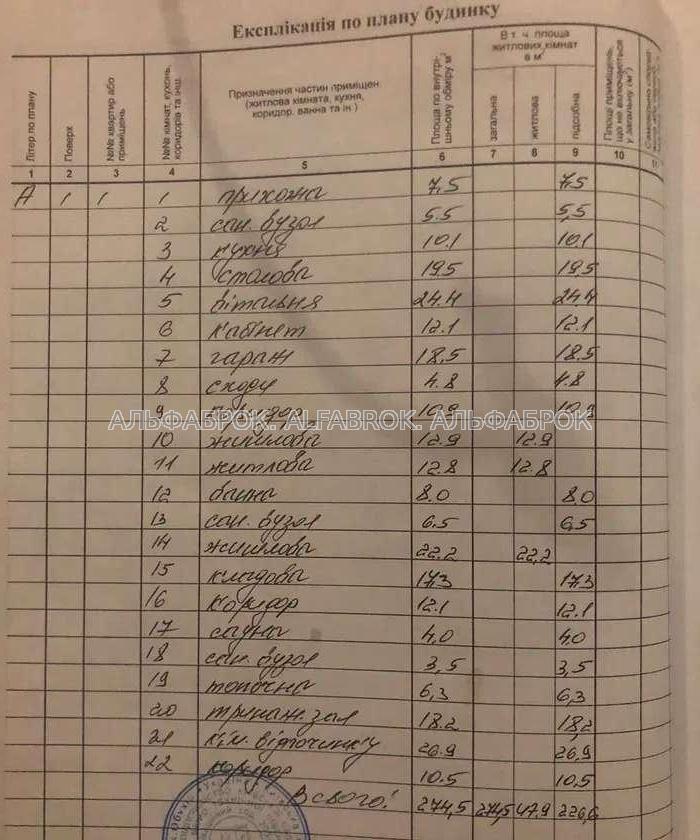 Експлікація по плану будинку
Літер по плану
Поверх
№№ квартир або приміщень
№№ кімнат, кухонь, коридорів та інш.
Призначення частин приміщен
(житлова кімната, кухня,
коридор, ванна та ін.)
Площа по внутрішньому обміру м²
В т. ч. площа
житлових кімнат
в м²
загальна
житлова
підсобна
Площа приміщень, що не включається у загальну (м²)
1 2 3 4 5 6 7 8 9 10 11
А 1 1 1 прихожа 7,5 7,5
2 сан. вузол 5.5 5,5
3 кухня 10.1 10.1
4 столова 19.5 19.5
5 вітальня 24.4 24.4
6 кабінет 12.1 12.1
7 гараж 18.5 18.5
8 сходи 4.8 4.8
9 коридор 10,9 10,9
АЛЬФАБРОК. ALFABROK. АЛЬФАБРОК
10 житлова 12.9 12.9
11 житлова 12.8 12.8
12 ванна 8.0 8.0
13 сан. вузол 6,5 6,5
14 житлова 22.2 22,2
15 кладова 17,3 17,3
16 коридор 12.1 12.1
17 сауна 4.0 4.0
18 сан. вузол 3,5 3,5
19 топочна 6,3 6,3
20 тринаж. зал 18.2 18,2
21 кім. відпочинку 26.9 26,9
22 коридор 10.5 10,5
Всього: 274,5 274,5 47.9 226,6